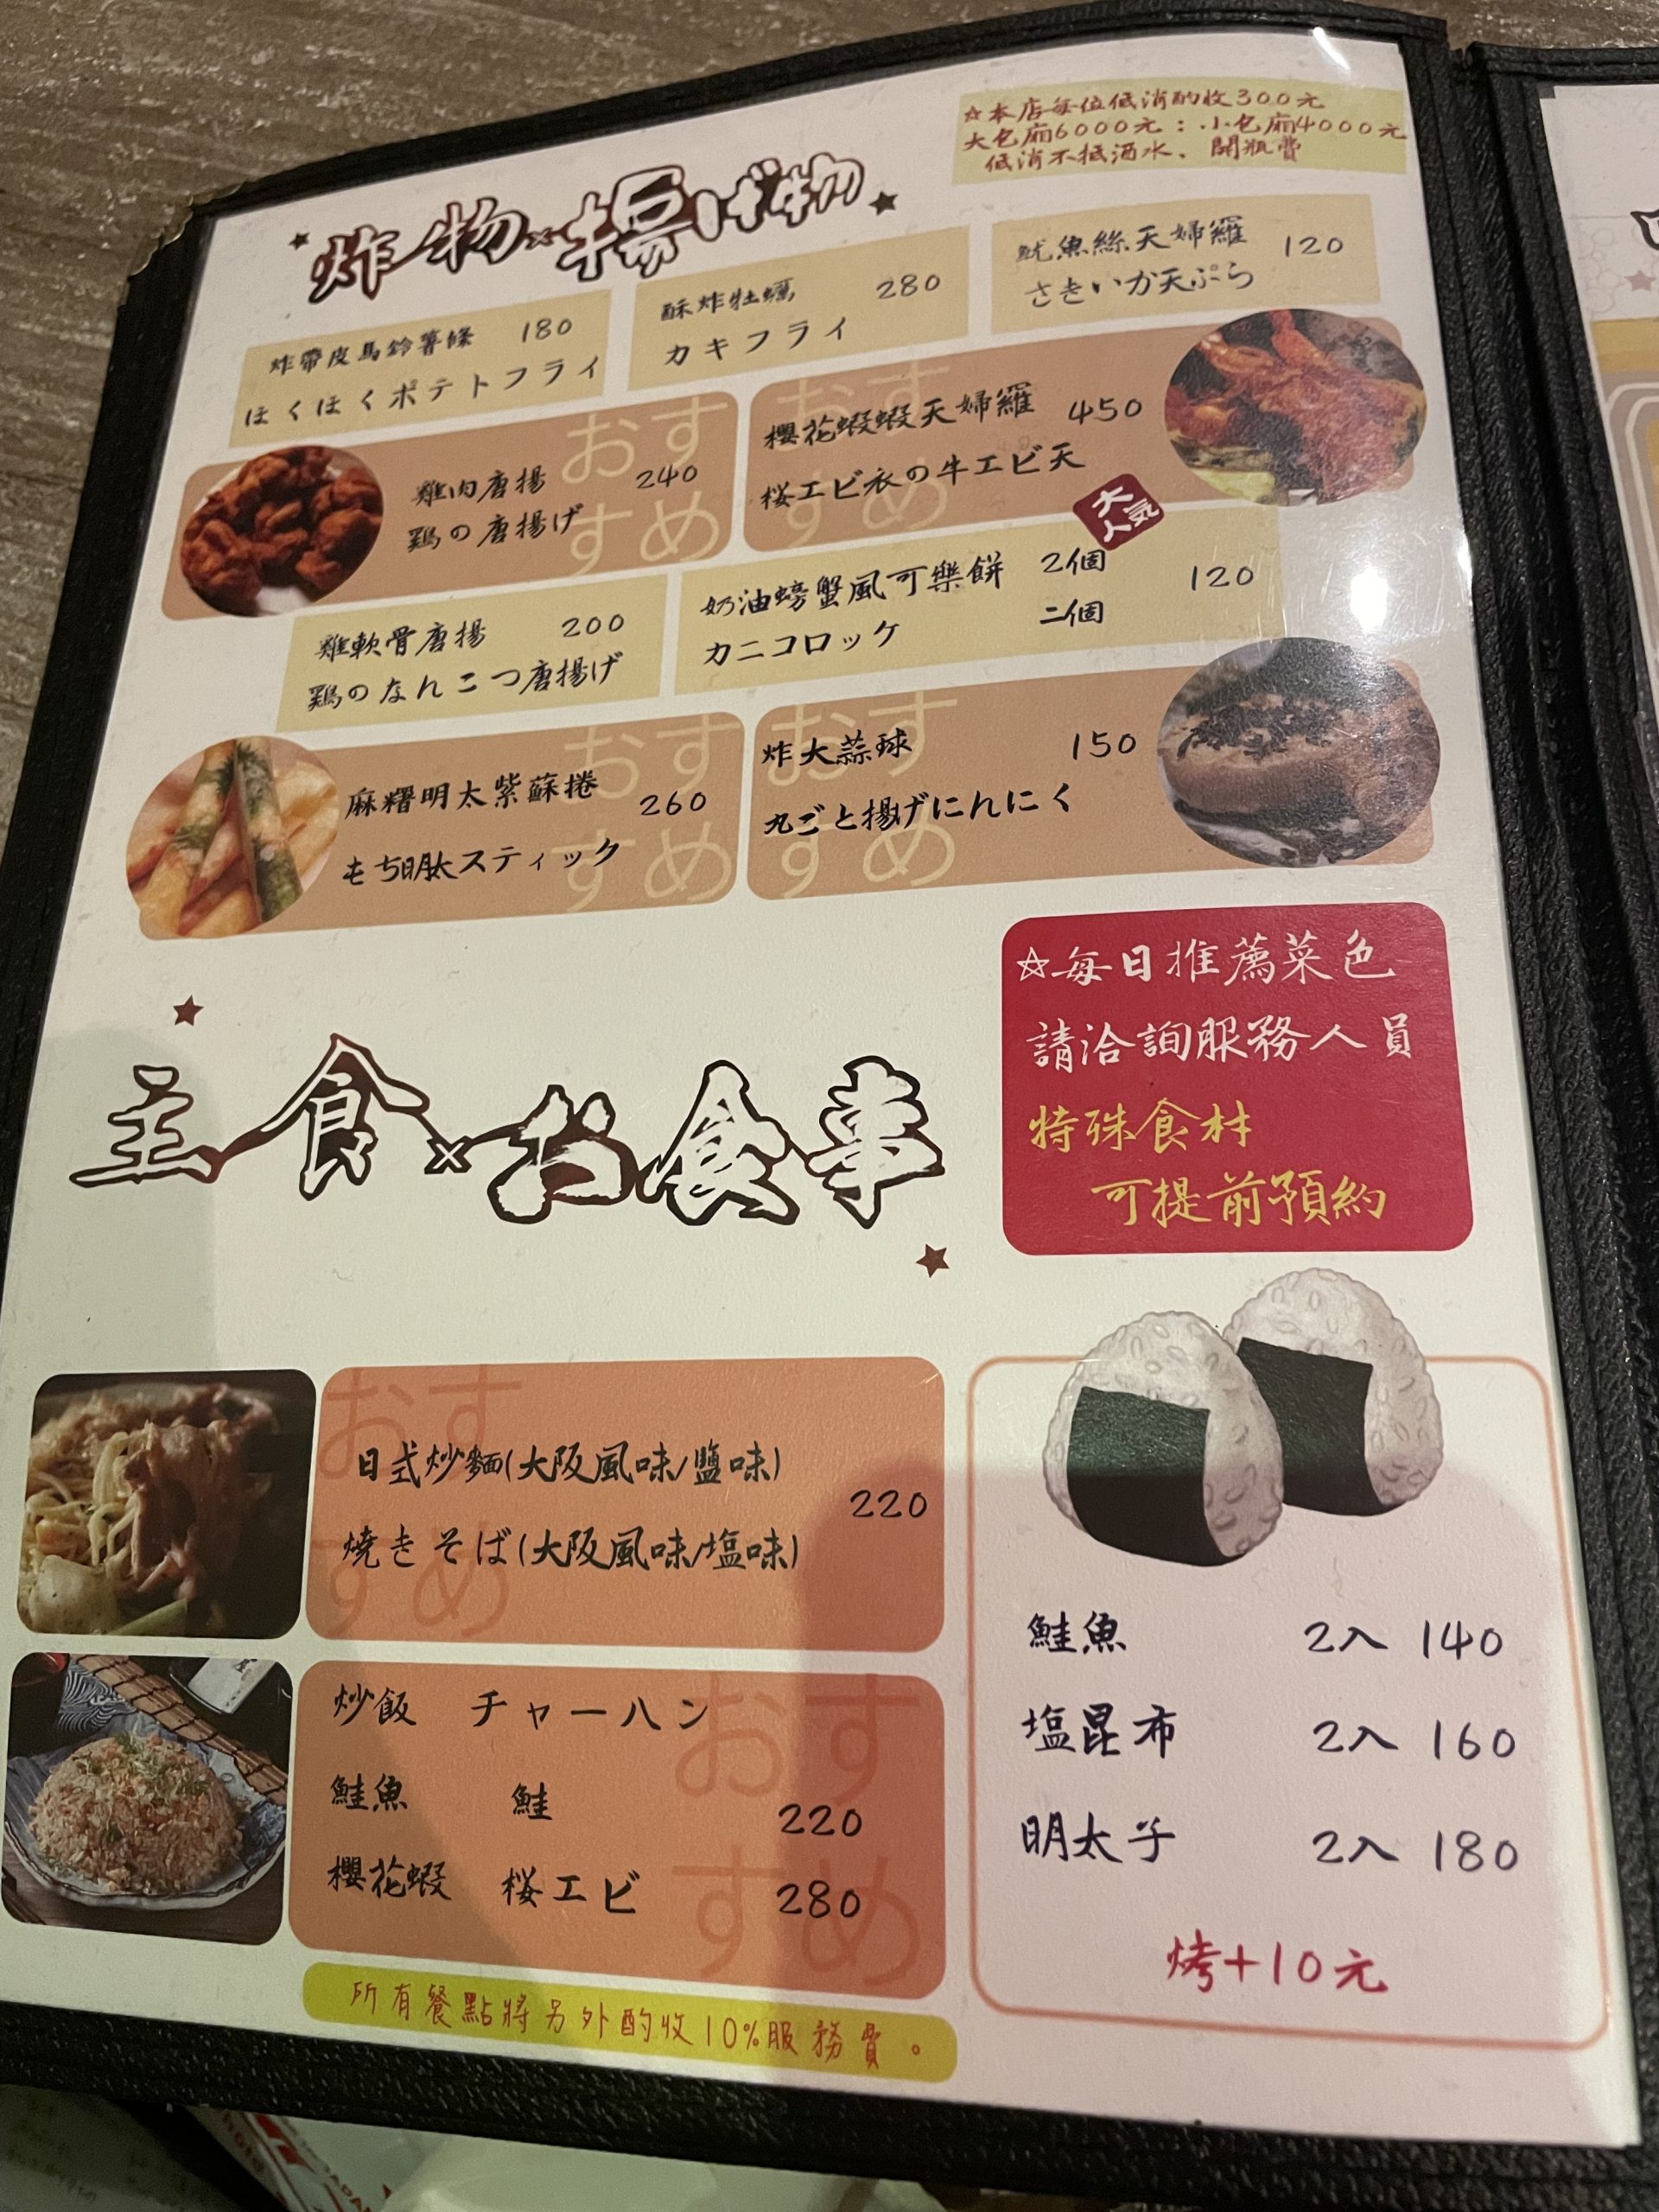 ☆本店每位低消酌收300元
大包廂6000元：小包廂4000元
低消不抵酒水、開瓶費
炸物×揚げ物
炸帶皮馬鈴薯條 180
ほくほくポテトフライ
酥炸牡蠣 280
カキフライ
魷魚絲天婦羅 120
さきいか天ぷら
おすすめ
雞肉唐揚 240
鶏の唐揚げ
おすすめ
櫻花蝦蝦天婦羅 450
桜エビ衣の牛エビ天
大人気
雞軟骨唐揚 200
鶏のなんこつ唐揚げ
奶油螃蟹風可樂餅 2個 120
カニコロッケ 二個
おすすめ
麻糬明太紫蘇捲 260
もち明太スティック
おすすめ
炸大蒜球 150
丸ごと揚げにんにく
☆每日推薦菜色
請洽詢服務人員
特殊食材
可提前預約
主食×お食事
おすすめ
日式炒麵(大阪風味/鹽味)
焼きそば(大阪風味/塩味)
220
おすすめ
炒飯 チャーハン
鮭魚 鮭 220
櫻花蝦 桜エビ 280
鮭魚 2入 140
塩昆布 2入 160
明太子 2入 180
烤+10元
所有餐點將另外酌收10%服務費。